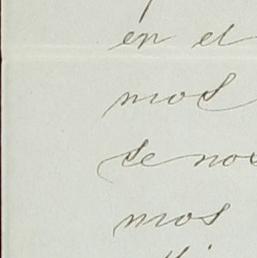 en el
mos
se nos
mos